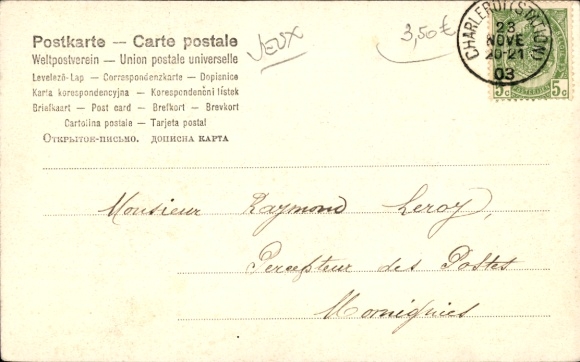 Postkarte — Carte postale
Weltpostverein — Union postale universelle
Levelező-Lap — Correspondenzkarte — Dopisnice
Karta korespondencyjna — Korespondenční lístek
Briefkaart — Post card — Brefkort — Brevkort
Cartolina postale — Tarjeta postal
Открытое-письмо. ДОПИСНА КАРТА
3,50€
CHARLEROI (STATION)
23
NOVE
20-21
03
5c 5c
Monsieur Raymond Leroy,
Percepteur des Postes
Momignies